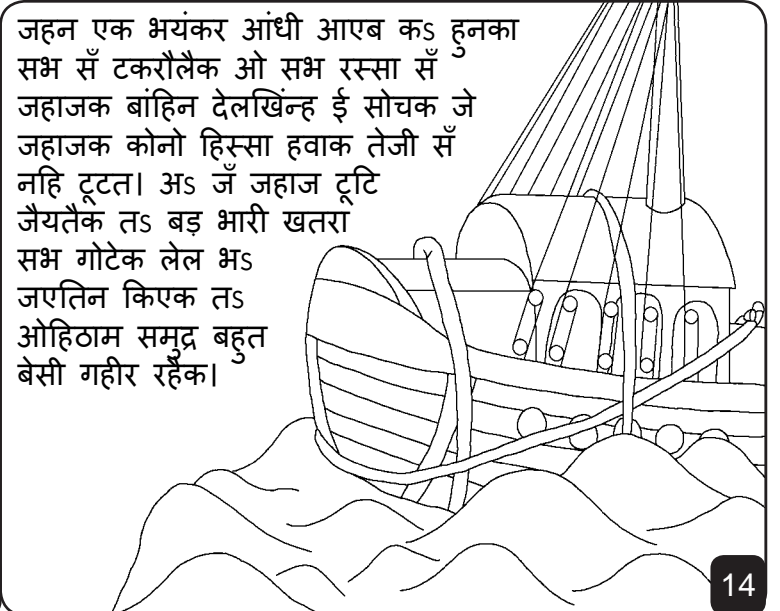 जहन एक भयंकर आंधी आएब कऽ हुनका
सभ सँ टकरौलैक ओ सभ रस्सा सँ
जहाजक बांहिन देलखिंन्ह ई सोचक जे
जहाजक कोनो हिस्सा हवाक तेजी सँ
नहि टूटत। अऽ जँ जहाज टूटि
जैयतैक तऽ बड़ भारी खतरा
सभ गोटेक लेल भऽ
जएतिन किएक तऽ
ओहिठाम समुद्र बहुत
बेसी गहीर रहैक।
14